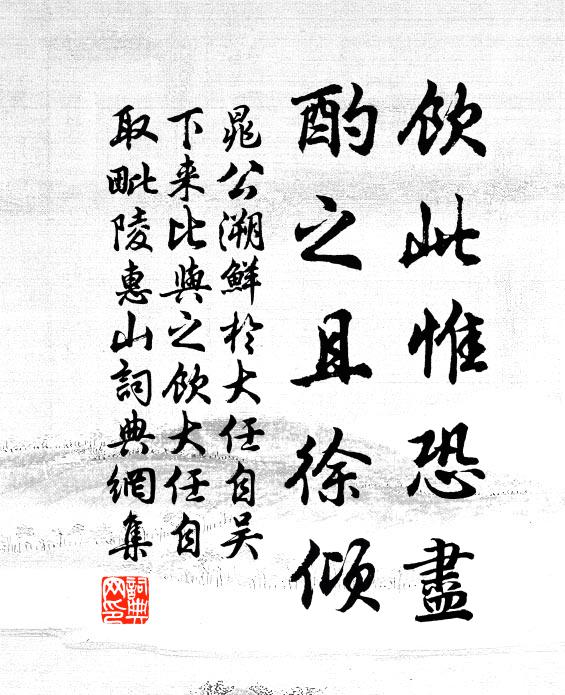 飲此惟恐盡
酌之且徐傾
晁公溯鮮於大任自吳
下来比與之飲大任自
取毗陵惠山詞典網集
詞典
网印